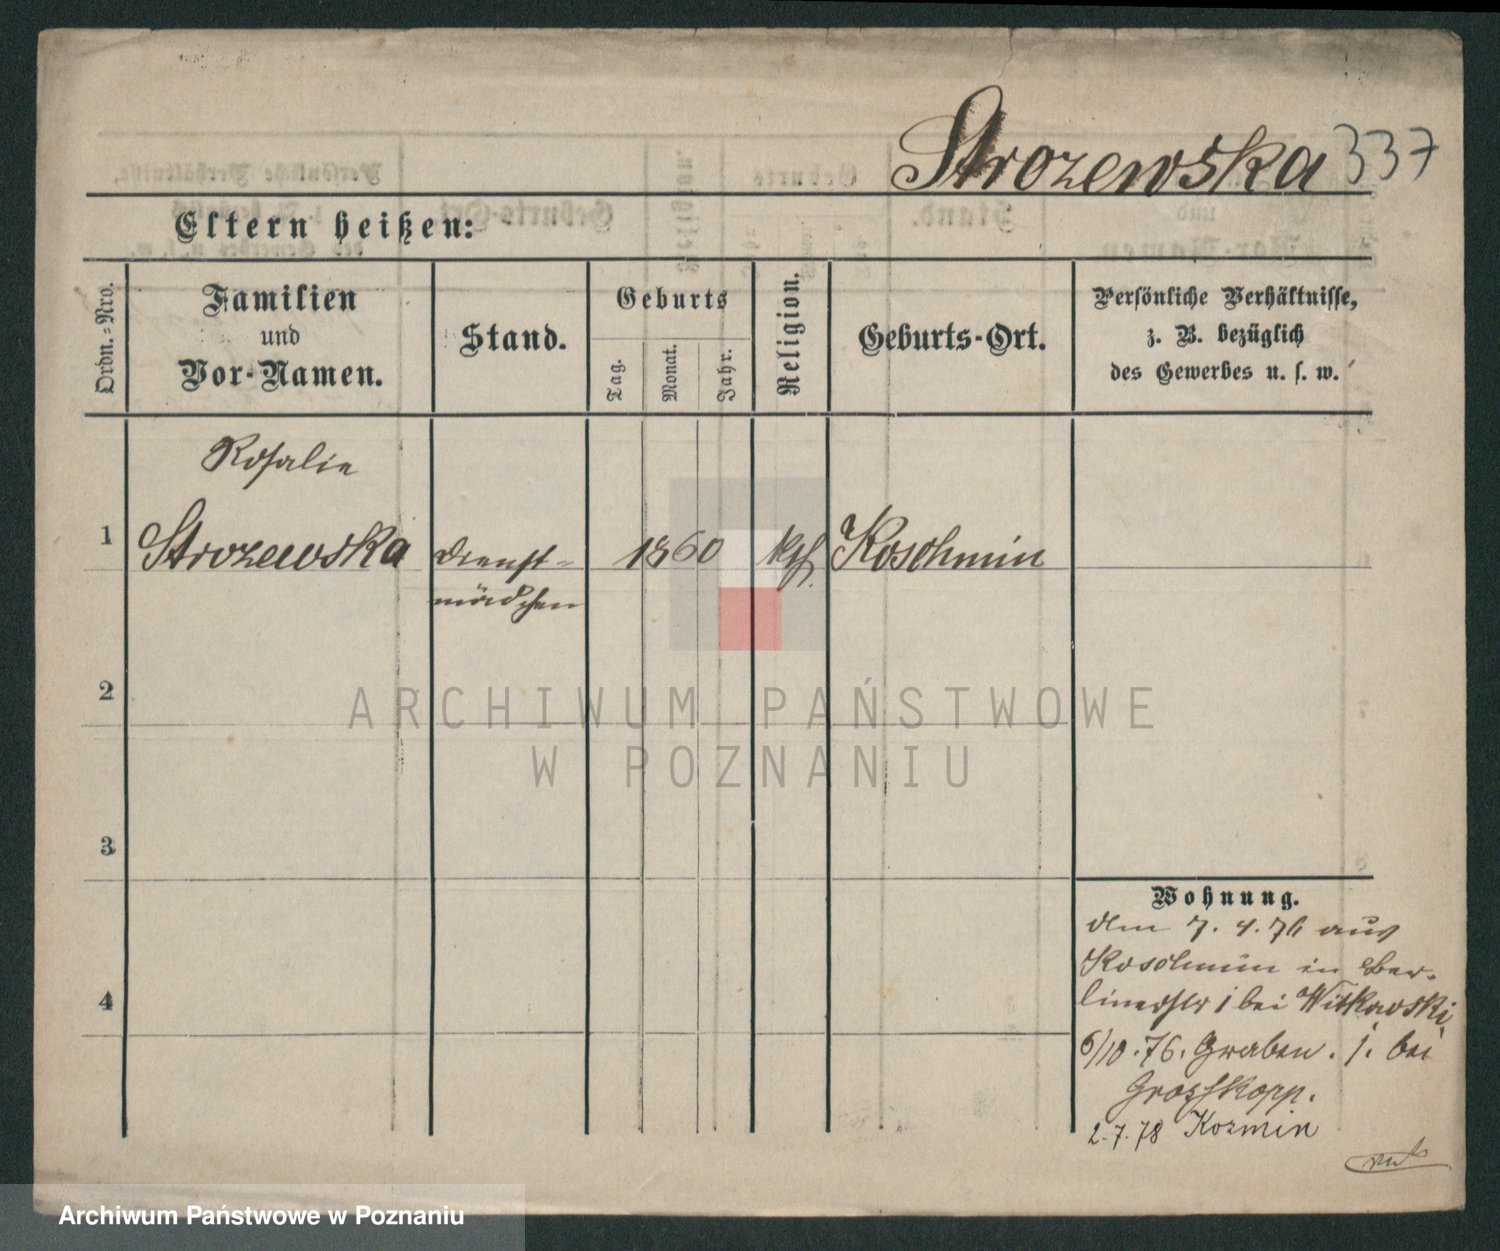 Strozewska 337
Eltern heißen:
Ordn.-Nro.
Familien
und
Vor-Namen.
Stand.
Geburts
Tag.
Monat.
Jahr.
Religion.
Geburts-Ort.
Persönliche Verhältnisse,
z. B. bezüglich
des Gewerbes u. s. w.
Rosalie
1 Strozewska Dienst- 1860 kth. Koschmin
mädchen
2
3
4
Wohnung.
den 7. 4. 76 aus
Koschmin in Ber-
linerstr 1 bei Witkowski
6/10. 76. Graben. 1. bei
Grosskopp.
2.7.78 Kozmin
ARCHIWUM PAŃSTWOWE
W POZNANIU
Archiwum Państwowe w Poznaniu